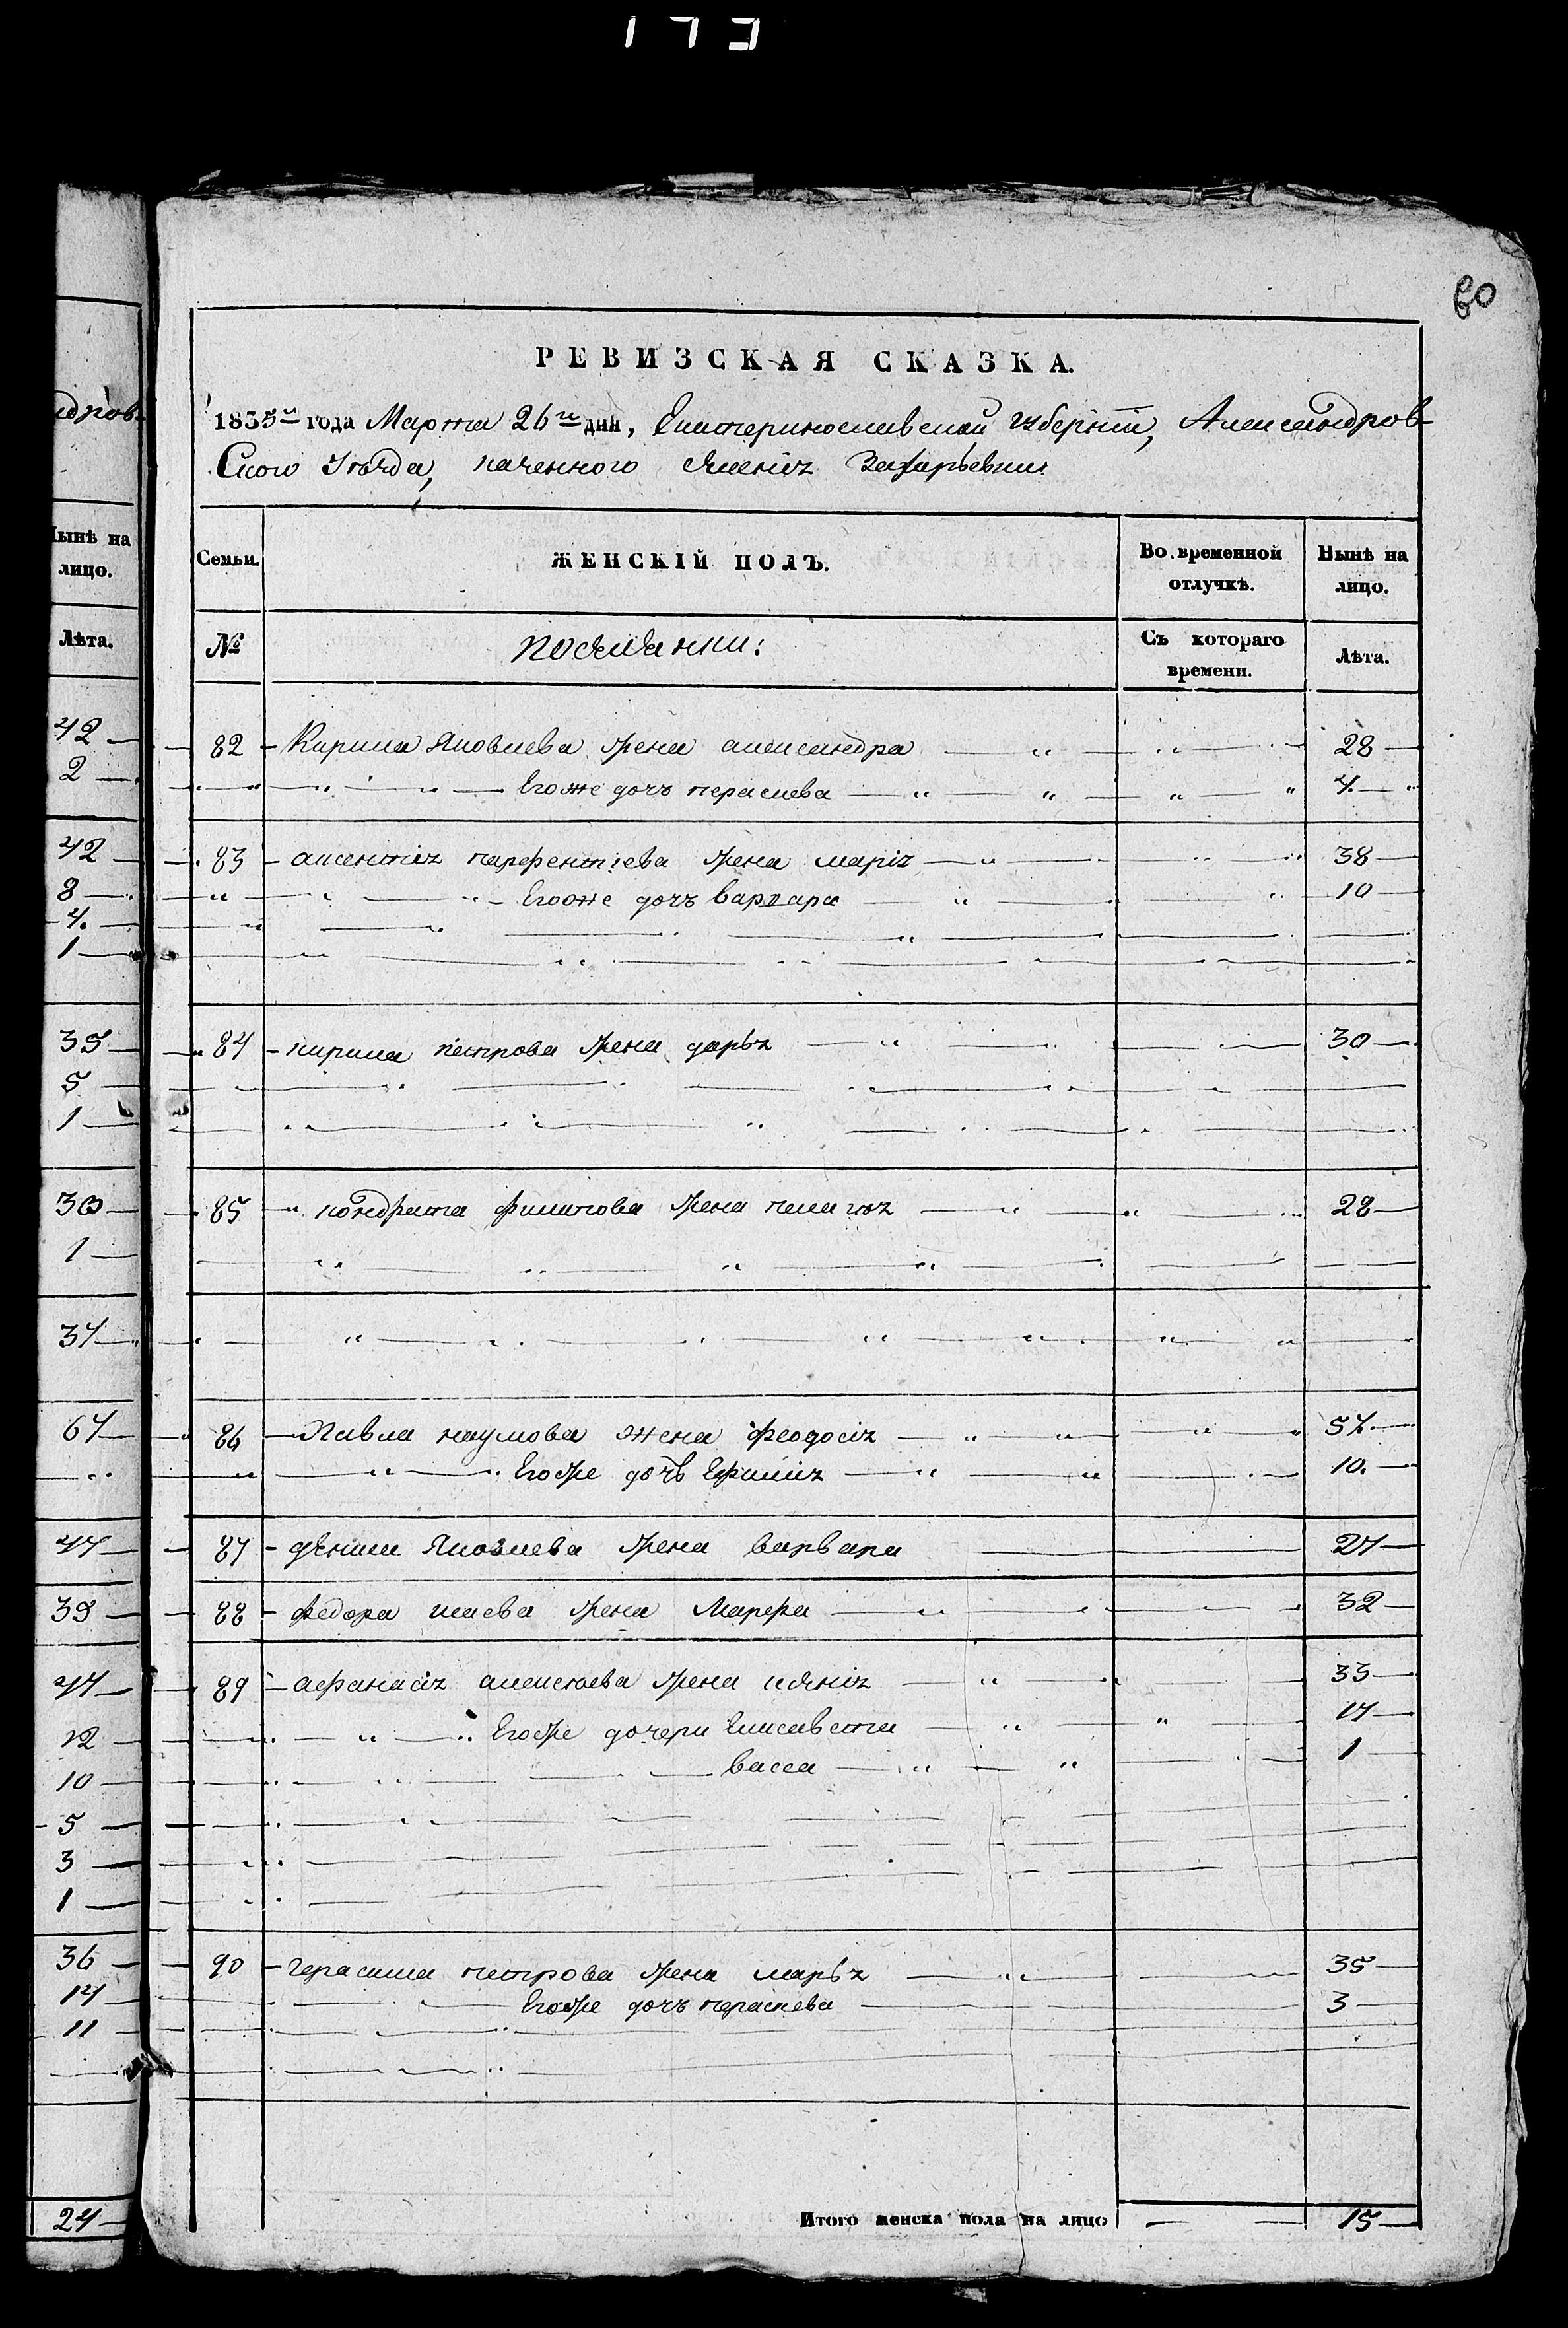 173
ндров-
Нынѣ на
лицо.
Лѣта.
42
2
42
8
4
1
39
5
1
30
1
34
64
44
39
44
12
10
5
3
1
36
14
11
24
60
РЕВИЗСКАЯ СКАЗКА.
1835го года Марта 26го дня, Екатеринославской губернии, Александров-
Ского Уѣзда, казенного Селенія
Семьи. ЖЕНСКІЙ ПОЛЪ. Во временной отлучкѣ. Нынѣ на лицо.
№ поселянки: Съ котораго времени. Лѣта.
82 Кирила Яковлева жена александра 28
Егоже дочь параскева 4
83 аксентія парфентіева жена марія 38
Егоже дочь варвара 10
84 кирила петрова жена дарья 30
85 кондрата филипова жена пелагея 28
86 Павла наумова жена феодосія 54
Егоже дочь Ефимія 10
87 дениса Яковлева жена варвара 24
88 федора исаева жена Марфа 32
89 афанасія алексеева жена ксенія 33
Егоже дочери Елисавета 14
васса 1
90 герасима петрова жена марья 35
Егоже дочь параскева 3
Итого женска пола на лицо 15